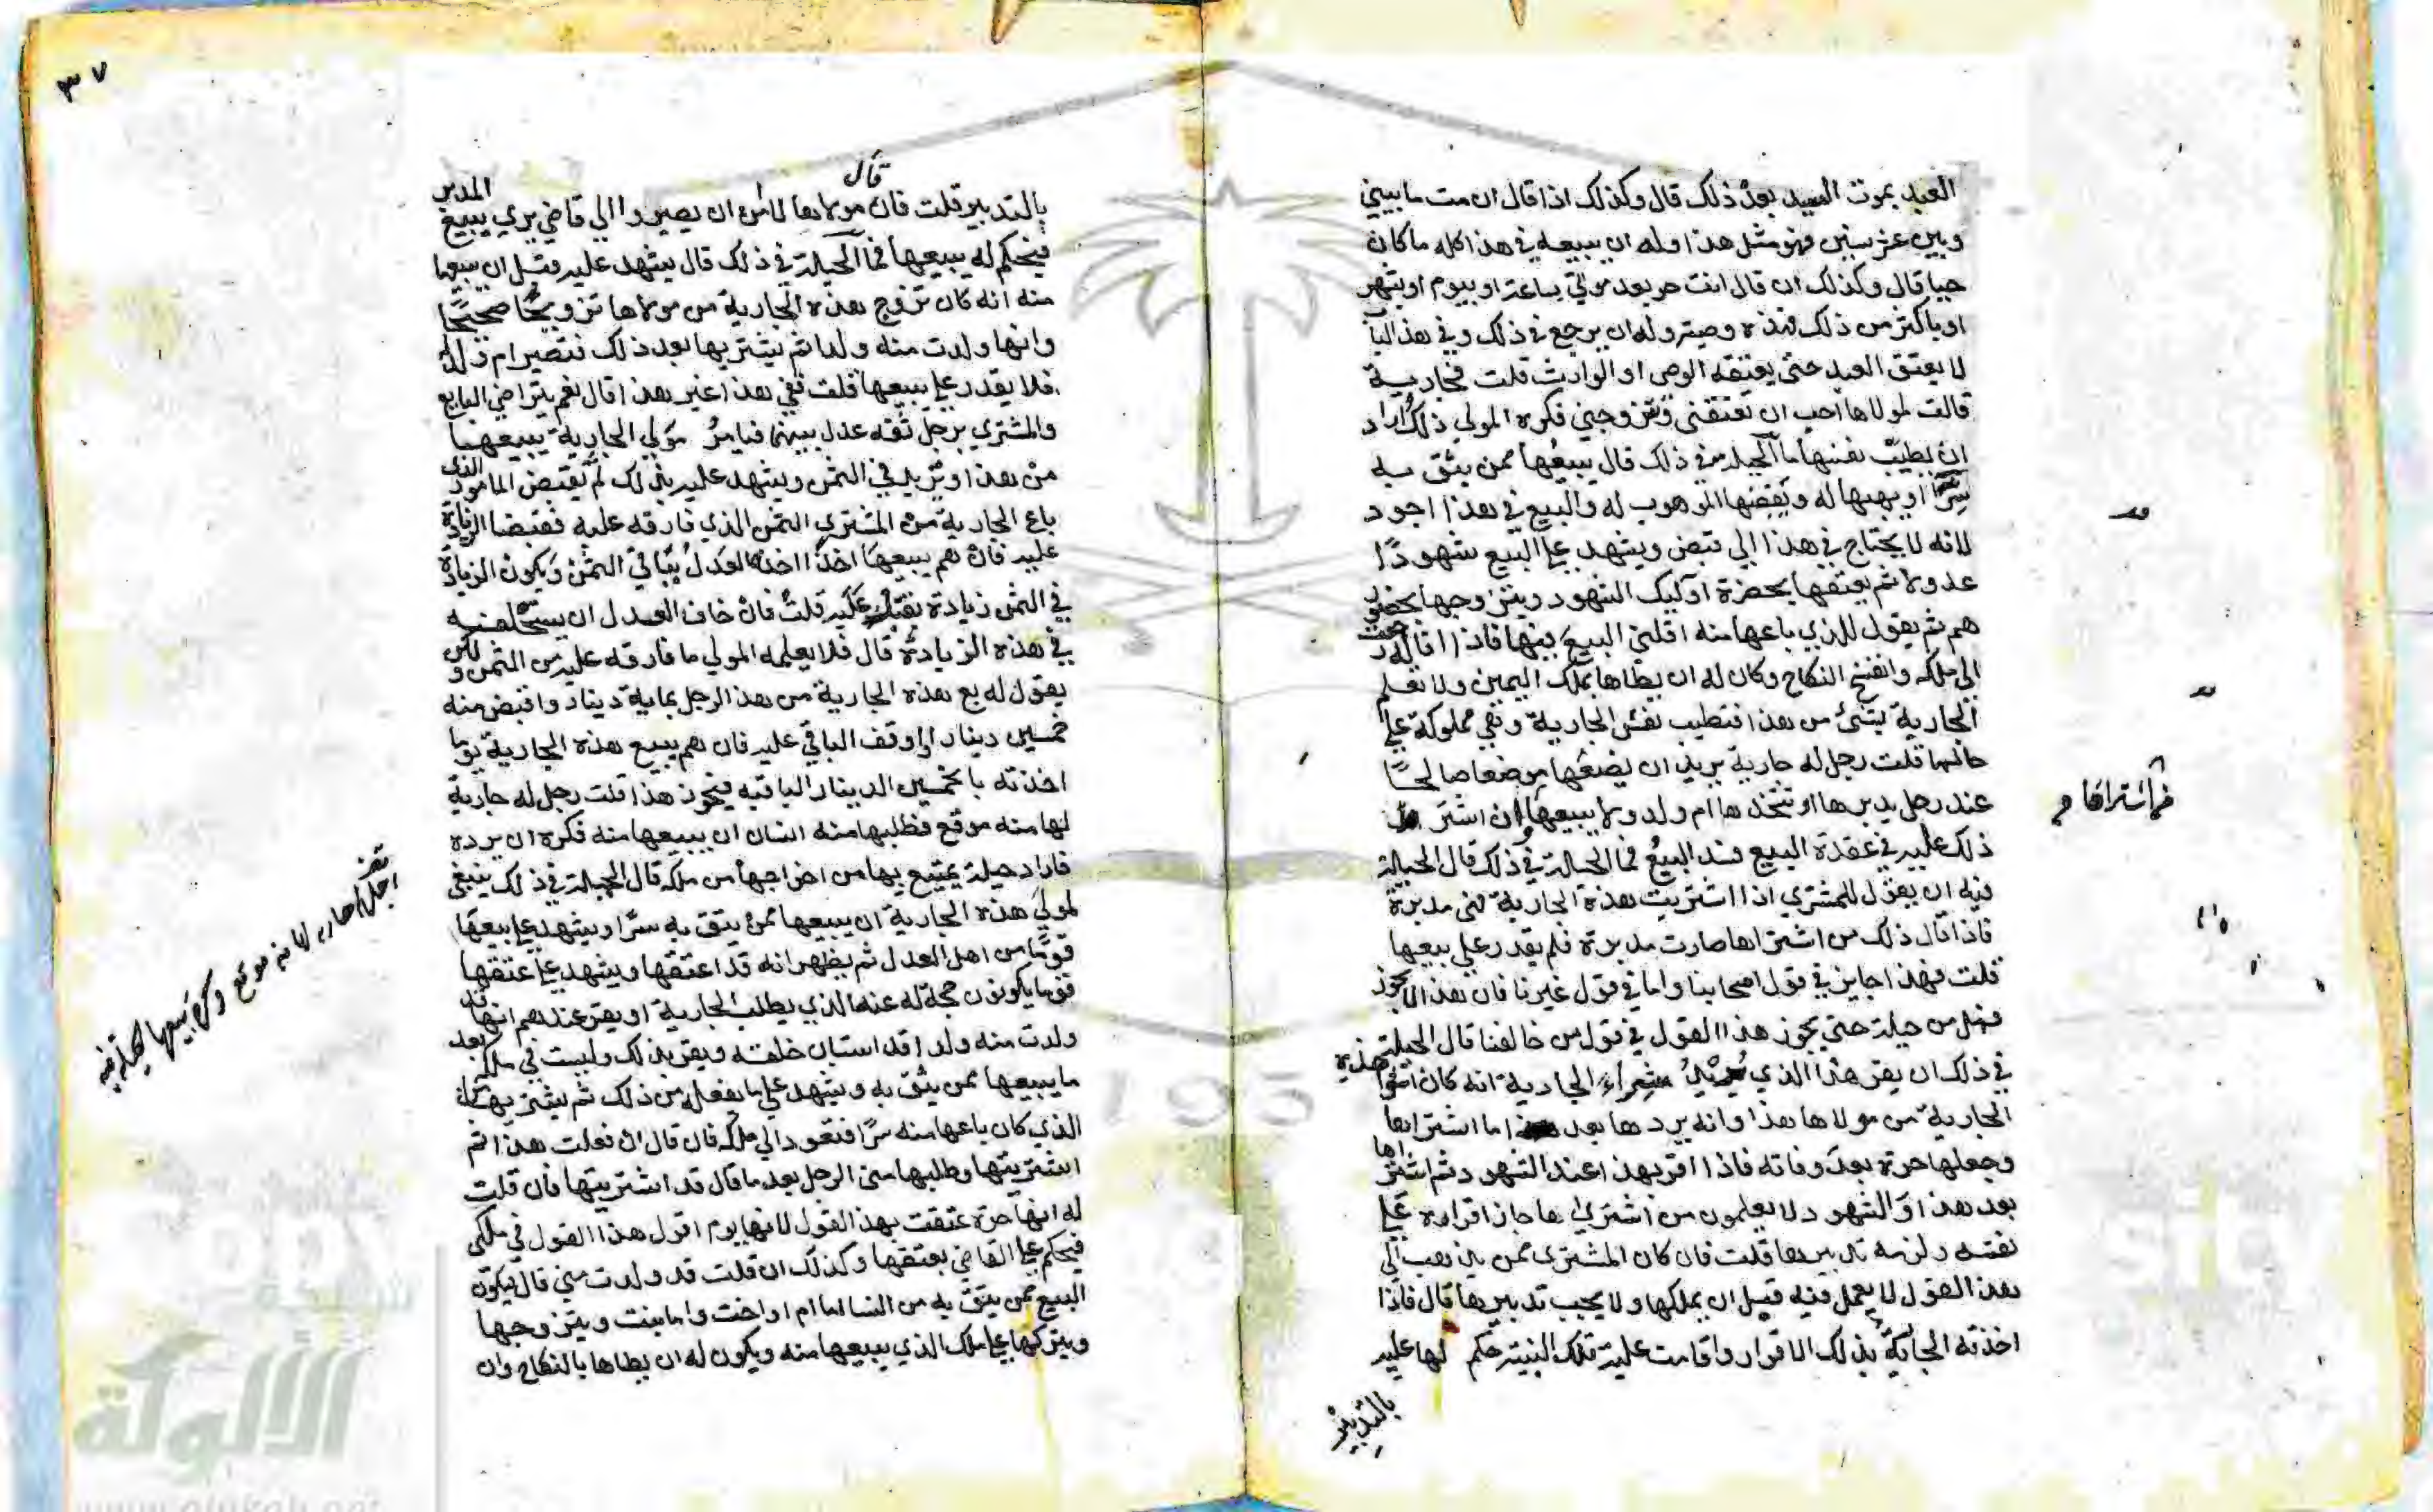 العبد بموت السيد بعد ذلك قال وكذلك اذا قال ان مت ما بيني
وبين عشر سنين فهو مثل هذا وله ان يبيعه في هذا كله ما كان
حيا قال وكذلك ان قال انت حر بعد موتي بساعة او بيوم او بشهر
او باكثر من ذلك فهذه وصية وله ان يرجع في ذلك وفي هذا البا
لا يعتق العبد حتى يعتقه الوصي او الوارث قلت فجارية
قالت لمولاها احب ان تعتقني وتتزوجني فكره المولي ذلك اراد
ان يطيب نفسها ما الحيلة في ذلك قال يبيعها ممن يثق به
سرا او يهبها له ويقبضها الموهوب له والبيع في هذا اجود
لانه لا يحتاج في هذا الي قبض ويشهد علي البيع شهودا
عدولا ثم يعتقها بحضرة اوليك الشهود ويتزوجها بحضور
هم ثم يقول للذي باعها منه اقلني البيع فيها فاذا اقاله رجعت
الي ملكه وانفسخ النكاح وكان له ان يطاها بملك اليمين ولا تعلم
الجارية بشئ من هذا فتطيب نفس الجارية وهي مملوكة علي
حالها قلت رجل له جارية يريد ان يضعها موضعا صالحا
عند رجل يدبرها او يتخذها ام ولد ولا يبيعها ان اشترط
ذلك عليه في عقدة البيع فسد البيع فما الحيلة في ذلك قال الحيلة
فيه ان يقول للمشتري اذا اشتريت هذه الجارية فهي مدبرة
فاذا قال ذلك من اشتراها صارت مدبرة فلم يقدر علي بيعها
قلت فهذا جايز في قول اصحابنا واما في قول غيرنا فان هذا لا يجوز
فهل من حيلة حتي يجوز هذا القول في قول من خالفنا قال الحيلة
في ذلك ان يقر هذا الذي يريد شراء الجارية انه كان اشترا هذه
الجارية من مولاها هذا وانه يردها بعد ما اشتراها
وجعلها حرة بعد وفاته فاذا اقر بهذا عند الشهود ثم اشتراها
بعد هذا والشهود لا يعلمون من اشتراها جاز اقراره علي
نفسه ولزمه تدبيرها قلت فان كان المشتري ممن يذهب الي
هذا القول لا يعمل فيه قبل ان يملكها ولا يجب تدبيرها قال فاذا
اخذته الجارية بذلك الاقرار واقامت عليه تلك البينة حكم لها عليه
بالتدبير
٣٧
بالتدبير قلت فان مولاها قال لا امن ان يصيروا الي قاضي يري بيع المدبر
فيحكم له ببيعها فما الحيلة في ذلك قال يشهد عليه قبل ان يبيعها
منه انه كان تزوج هذه الجارية من مولاها تزويجا صحيحا
وانها ولدت منه ولدا ثم يشتريها بعد ذلك فتصير ام ولد
فلا يقدر علي بيعها قلت ففي هذا غير هذا قال نعم يتراضي البايع
والمشتري برجل ثقة عدل بينهما فيامر مولي الجارية ببيعها
من هذا ويزيد في الثمن ويشهد عليه بذلك ثم يقبض المامور الذي
باع الجارية من المشتري الثمن الذي فارقه عليه فقبضا الزيادة
عليه فان هم ببيعها اخذا اخذه العدل بباقي الثمن ويكون الزيادة
في الثمن زيادة عليه قلت فان خاف العدل ان يستحلفه
في هذه الزيادة قال فلا يعلمه المولي ما فارقه عليه من الثمن ولكن
يقول له بع هذه الجارية من هذا الرجل بماية دينار واقبض منه
خمسين دينارا واوقف الباقي عليه فان هم ببيع هذه الجارية يوما
اخذته بالخمسين الدينار الباقيه فيجوز هذا قلت رجل له جارية
لها منه موقع فطلبها منه انسان ان يبيعها منه فكره ان يرده
فاراد حيلة يمتنع بها من اخراجها من ملكه قال الحيلة في ذلك ينبغي
لمولي هذه الجارية ان يبيعها ممن يثق به سرا ويشهد علي بيعها
قوما من اهل العدل ثم يظهر انه قد اعتقها ويشهد علي عتقها
قوما يكونون حجة له عند الذي يطلب الجارية او يقر عندهم انها قد
ولدت منه ولدا قد استبان خلقته ويقر بذلك وليست في ملكه بعد
ما يبيعها ممن يثق به ويشهد علي ما يفعل من ذلك ثم يشتريها من
الذي كان باعها منه سرا فتعود الي ملكه فان قال ان فعلت هذا ثم
اشتريتها وطلبها مني الرجل بعد ما قال قد اشتريتها فان قلت
له انها حرة عتقت بهذا القول لانها يوم اقول هذا القول في ملكي
فيحكم علي القاضي بعتقها وكذلك ان قلت قد ولدت مني قال يكون
البيع ممن يثق به من النساء اما ام او اخت واما بنت ويتزوجها
ويتركها علي ملك الذي يبيعها منه ويكون له ان يطاها بالنكاح وان
الألوكة
www.alukah.net